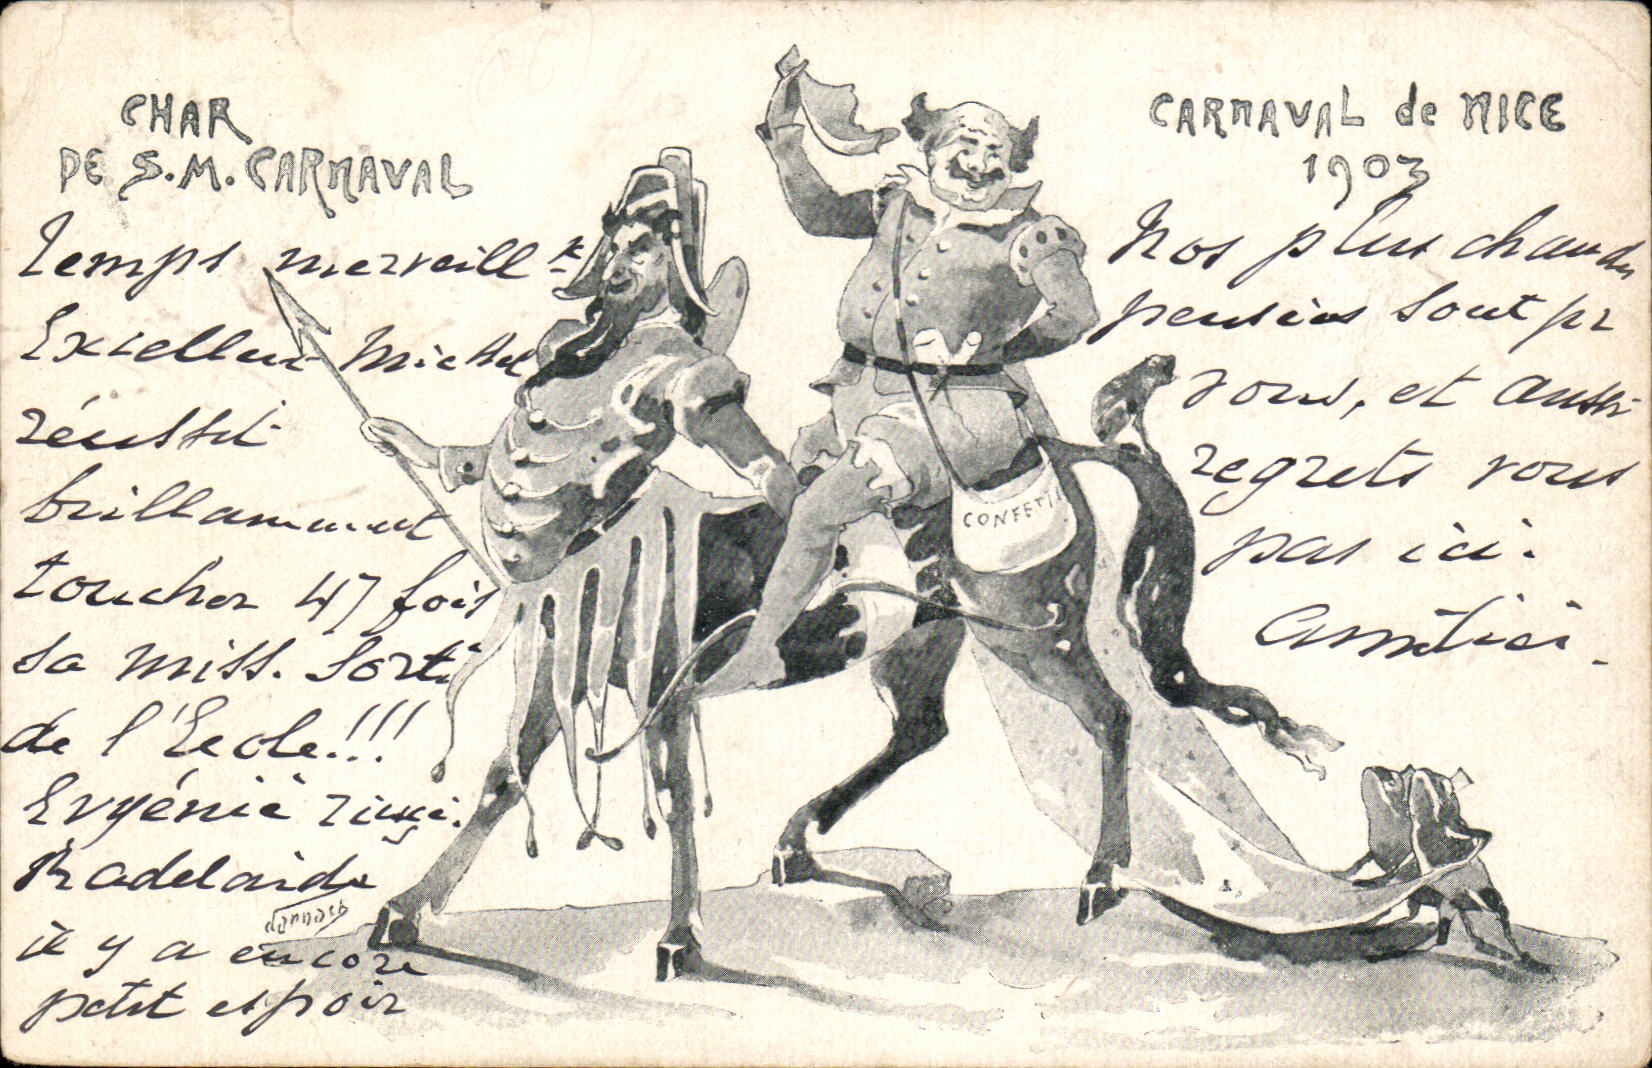 CHAR
DE S.M. CARNAVAL
Temps merveill x
Excellent Michel
réussit
brillamment
toucher 47 fois
sa miss. Sorti
de l'École!!!
Evgénie
R adelaide
il y a encore
petit espoir
dannach
CONFETTI
CARNAVAL de NICE
1903
Nos plus chaudes
pensées sont pr
vous, et aussi
regrets vous
pas ici.
Amitiés.